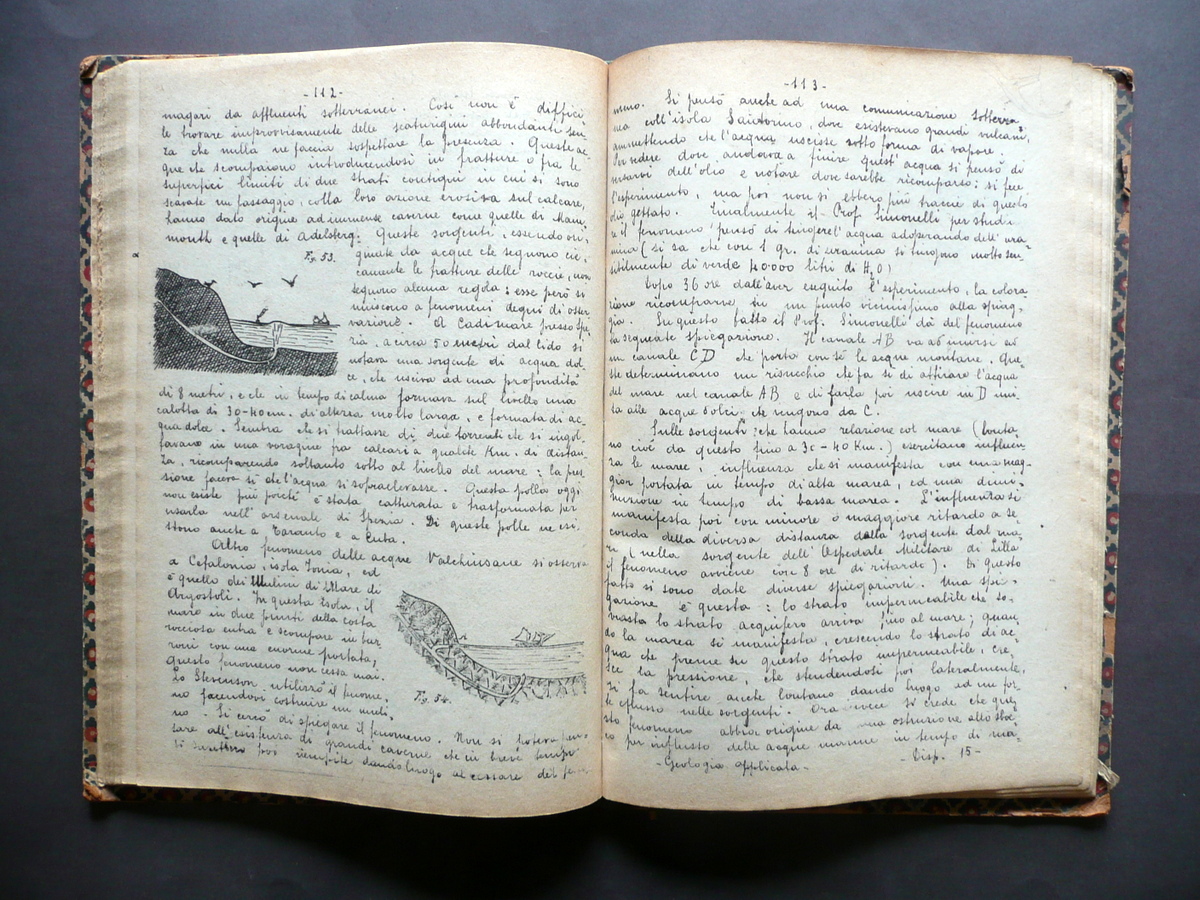 -112-
magari da affluenti sotterranei. Così non è diffici
le trovare improvvisamente delle scaturigini abbondanti sen
za che nulla ne faccia sospettare la presenza. Queste ac
que che scompaiono introducendosi in fratture o fra le
superfici limiti di due strati contigui in cui si sono
scavate un passaggio, colla loro azione erosiva sul calcare,
hanno dato origine ad immense caverne come quelle di Mam
mouth e quelle di Adelsberg. Queste sorgenti, essendo ori
Fig. 53.
ginate da acque che seguono
camente le fratture delle roccie, non
seguono alcuna regola: esse però si
uniscono a fenomeni degni di osser
vazione. A Cadimare presso Spe
zia, a circa 50 metri dal lido si
notava una sorgente di acqua dol
ce, che usciva ad una profondità
di 8 metri, e che in tempo di calma formava sul livello una
calotta di 30-40 cm. di altezza molto larga, e formata di ac
qua dolce. Sembra che si trattasse di due torrenti che si ingol
favano in una voragine fra calcari a qualche Km. di distan
za, ricomparendo soltanto sotto al livello del mare: la pres
sione faceva sì che l'acqua si sopraelevasse. Questa polla oggi
non esiste più poichè è stata catturata e trasformata per
usarla nell'arsenale di Spezia. Di queste polle ne esi
stono anche a Taranto e a Cuba.
Altro fenomeno delle acque Valchiusane si osserva
a Cefalonia, isola Ionia, ed
è quello dei Mulini di Mare di
Argostoli. In questa isola, il
mare in due punti della costa
rocciosa entra e scompare in bur
roni con una enorme portata,
questo fenomeno non cessa mai.
Lo Stevenson utilizzò il fenome
no facendovi costruire un muli
no. Si cercò di spiegare il fenomeno. Non si poteva pen
sare all'esistenza di grandi caverne che in breve tempo
si sarebbero poi riempite dando luogo al cessare del feno
Fig. 54.
-113-
meno. Si pensò anche ad una comunicazione sotterra
nea coll'isola Santorino, dove esistevano grandi vulcani,
ammettendo che l'acqua uscisse sotto forma di vapore.
Per vedere dove andava a finire quest'acqua si pensò di
versarvi dell'olio e notare dove sarebbe ricomparso: si fece
l'esperimento, ma poi non si ebbero più traccie di questo
olio gettato. Finalmente il Prof. Simonelli per studia
re il fenomeno pensò di tingere l'acqua adoperando dell'ura
nina (si sa che con 1 gr. di uranina si tingono molto sen
sibilmente di verde 40000 litri di H2O)
Dopo 36 ore dall'aver eseguito l'esperimento, la colora
zione ricomparve su un punto vicinissimo alla spiag
gia. Su questo fatto il Prof. Simonelli dà del fenomeno
la seguente spiegazione. Il canale AB va ad unirsi ad
un canale CD che porta con sè le acque montane. Que
ste determinano un risucchio che fa sì di attirare l'acqua
del mare nel canale AB e di farla poi uscire in D uni
ta alle acque dolci che vengono da C.
Sulle sorgenti che hanno relazione col mare (lonta
no cioè da questo fino a 30-40 Km.) esercitano influen
za le maree, influenza che si manifesta con una mag
gior portata in tempo di alta marea, ed una dimi
nuzione in tempo di bassa marea. L'influenza si
manifesta poi con minore o maggiore ritardo a se
conda della diversa distanza dalla sorgente dal ma
re (nella sorgente dell'Ospedale Militare di Lilla
il fenomeno avviene con 8 ore di ritardo). Di questo
fatto si sono date diverse spiegazioni. Una spie
gazione è questa: lo strato impermeabile che so
vrasta lo strato acquifero arriva fino al mare; quan
do la marea si manifesta, crescendo lo strato di ac
qua che preme su questo strato impermeabile, cre
sce la pressione, che stendendosi poi lateralmente,
si fa sentire anche lontano dando luogo ad un for
te efflusso nelle sorgenti. Ora invece si crede che que
sto fenomeno abbia origine da una ostruzione allo sboc
co per influsso delle acque marine in tempo di ma
-Geologia applicata-
-Disp. 15-